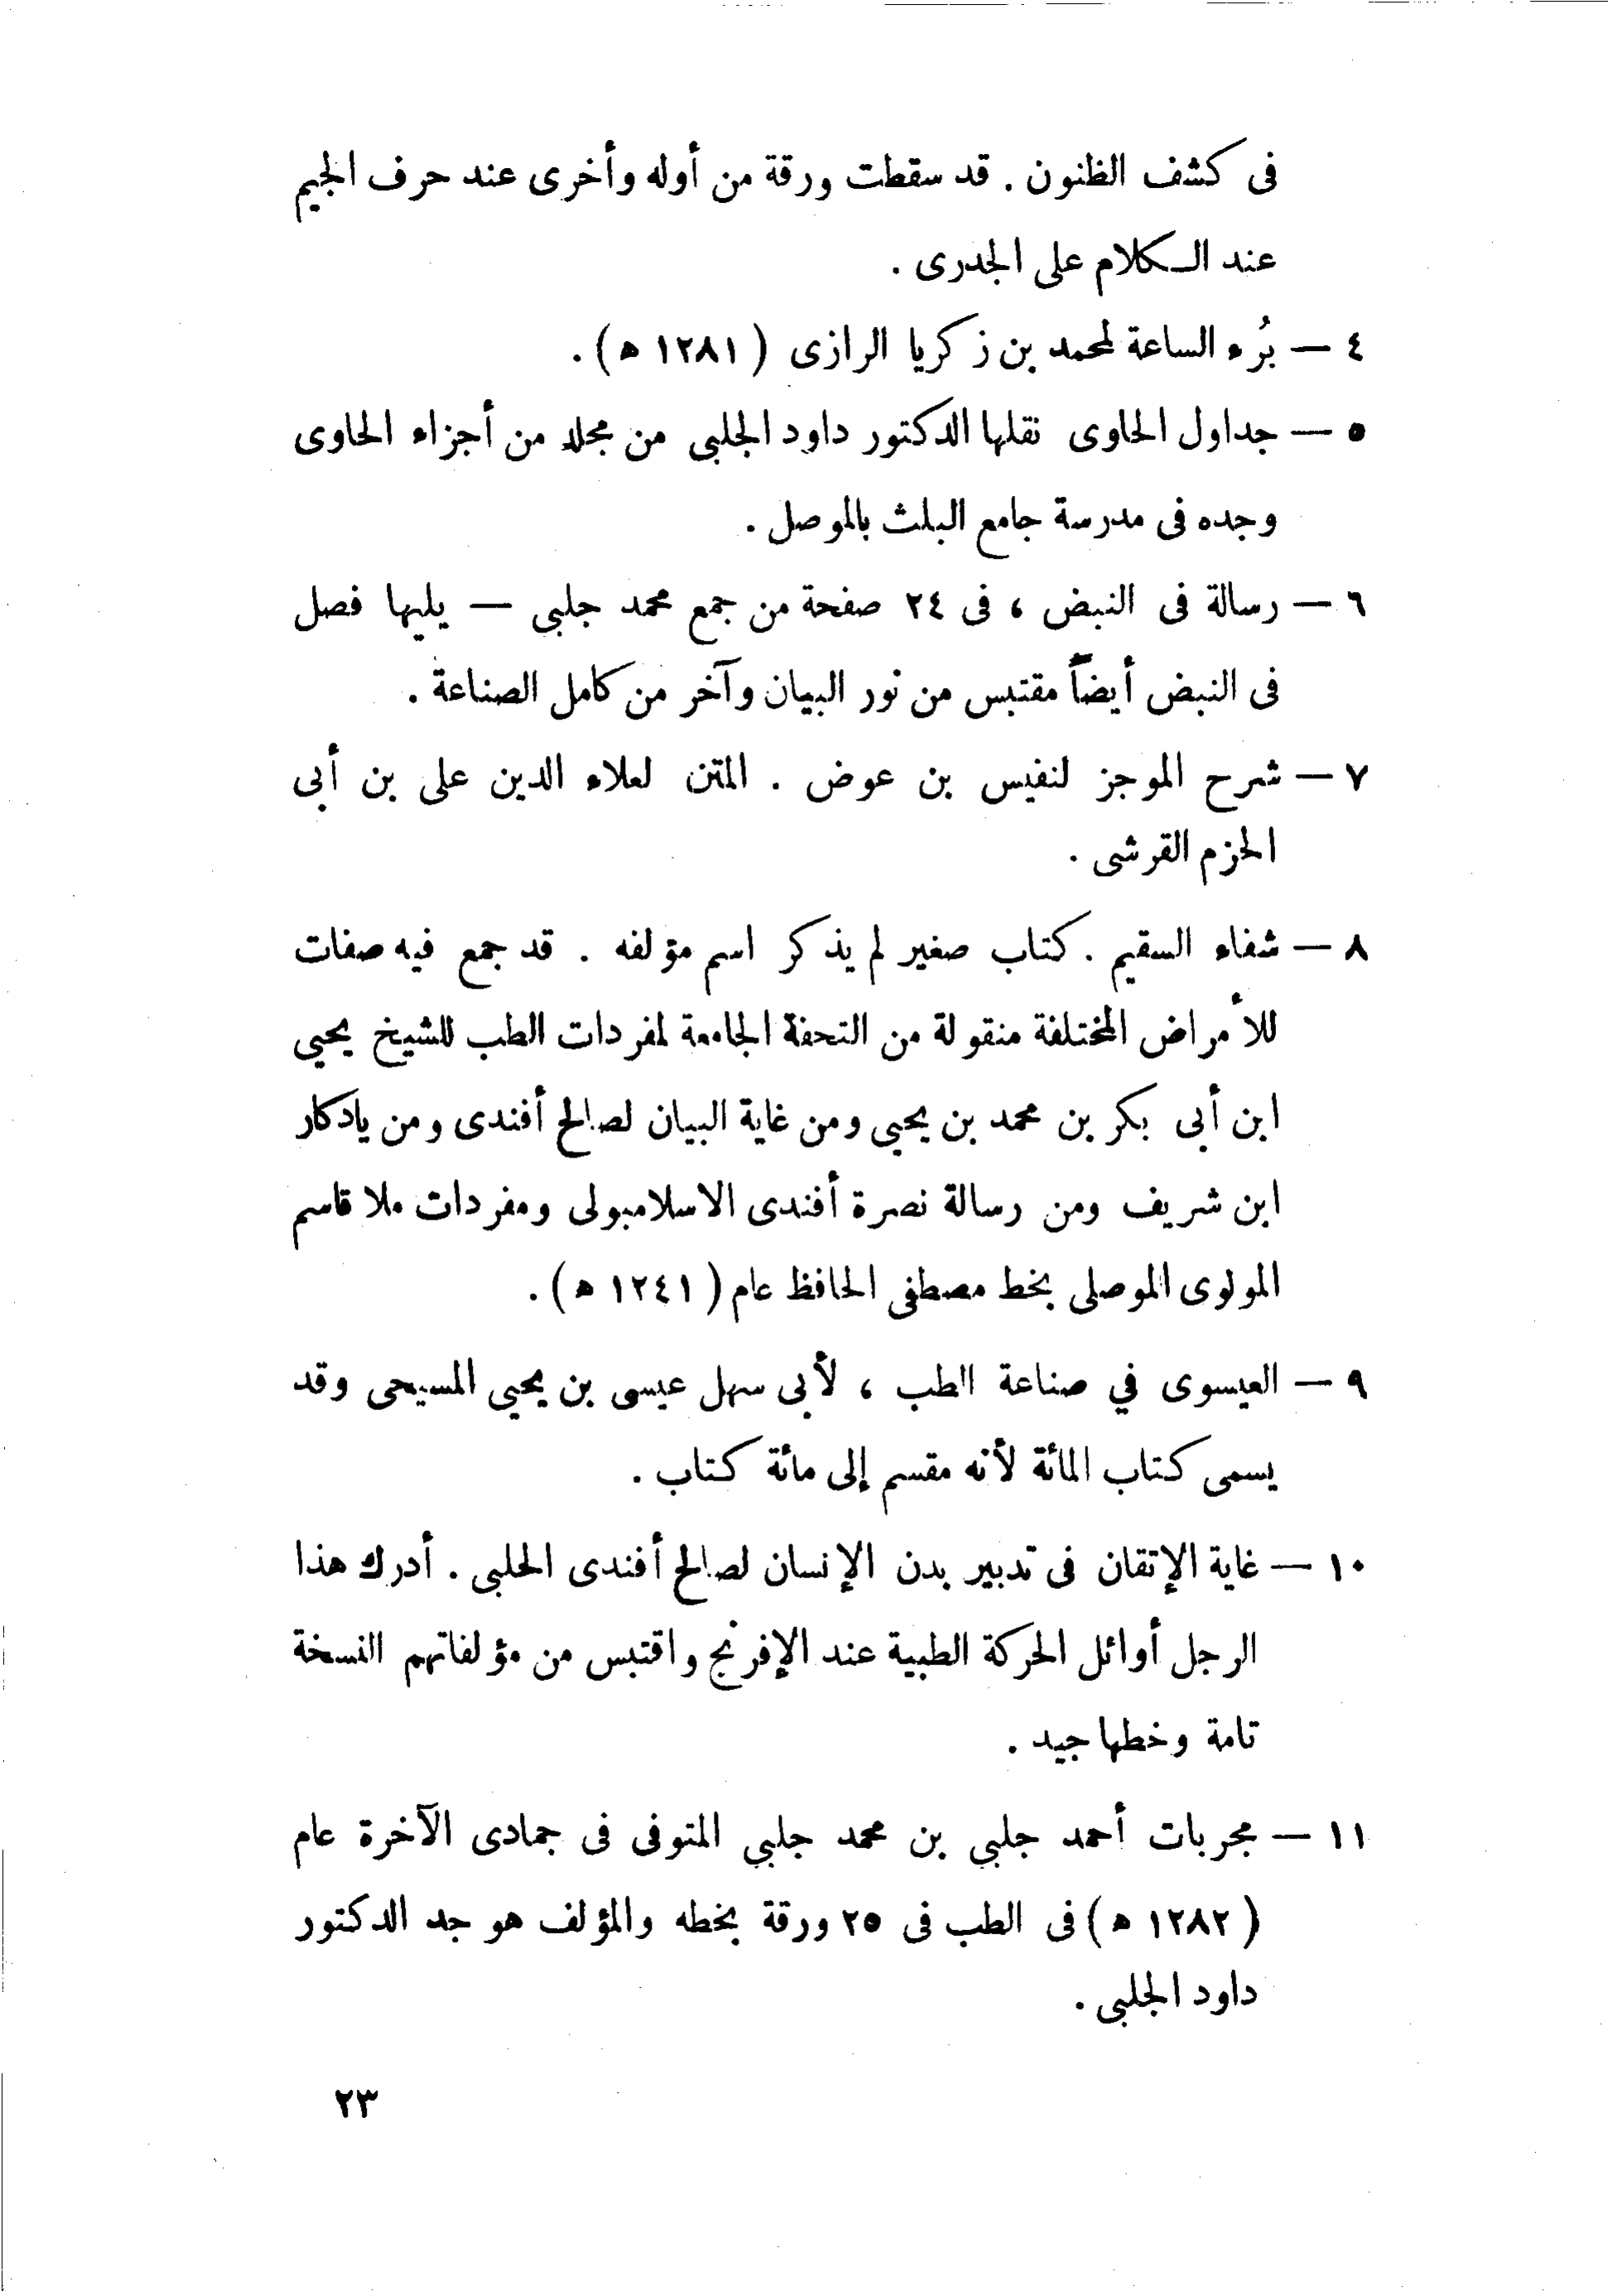 فى كشف الظنون . قد سقطت ورقة من أوله وأخرى عند حرف الجيم
عند الـكلام على الجدرى .
٤ — بُرء الساعة لمحمد بن زكريا الرازى ( ١٢٨١ ه ) .
٥ — جداول الحاوى نقلها الدكتور داود الجلبى من مجلد من أجزاء الحاوى
وجده فى مدرسة جامع البلث بالموصل .
٦ — رسالة فى النبض ، فى ٢٤ صفحة من جمع محمد جلبى — يليها فصل
فى النبض أيضاً مقتبس من نور البيان وآخر من كامل الصناعة .
٧ — شرح الموجز لنفيس بن عوض . المتن لعلاء الدين على بن أبى
الحزم القرشى .
٨ — شفاء السقيم . كتاب صغير لم يذكر اسم مؤلفه . قد جمع فيه صفات
للأمراض المختلفة منقولة من التحفة الجامعة لمفردات الطب للشيخ يحيى
ابن أبى بكر بن محمد بن يحيى ومن غاية البيان لصالح أفندى ومن يادكار
ابن شريف ومن رسالة نصرة أفندى الاسلامبولى ومفردات ملا قاسم
المولوى الموصلى بخط مصطفى الحافظ عام ( ١٢٤١ ه ) .
٩ — العيسوى في صناعة الطب ، لأبى سهل عيسى بن يحيى المسيحى وقد
يسمى كتاب المائة لأنه مقسم إلى مائة كتاب .
١٠ — غاية الإتقان فى تدبير بدن الإنسان لصالح أفندى الحلبى . أدرك هذا
الرجل أوائل الحركة الطبية عند الإفرنج واقتبس من مؤلفاتهم النسخة
تامة وخطها جيد .
١١ — مجربات أحمد جلبي بن محمد جلبي المتوفى فى جمادى الآخرة عام
( ١٢٨٢ ه ) فى الطب فى ٢٥ ورقة بخطه والمؤلف هو جد الدكتور
داود الجلبى .
٢٣